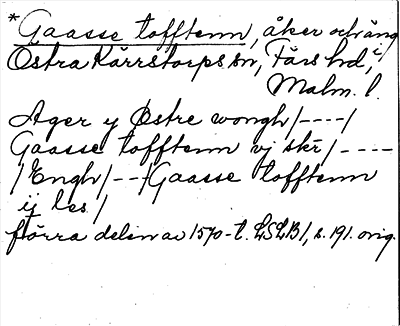 *Gaasse tofftenn, åker och äng i
Östra Kärrstorps sn, Färs hd,
Malm. l.
Ager y Østre wongh/----/
Gaasse tofftenn vj skr/----
/Engh/--/Gaasse tofftenn
ij les/
förra delen av 1570-t. LSLB1, s. 191. orig.